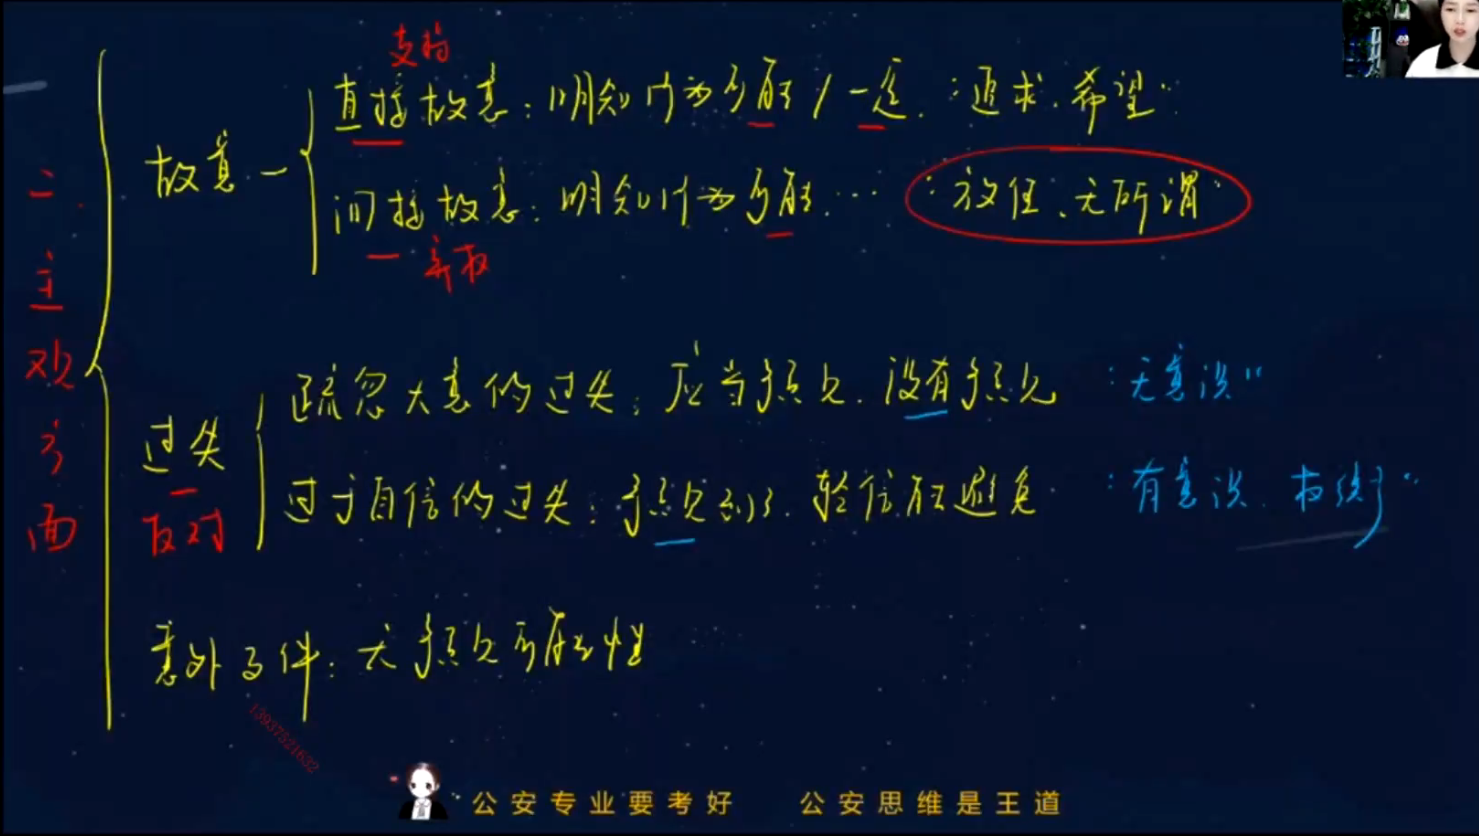 二.主观方面
故意
支持
直接故意：明知行为可能/一定."追求.希望"
间接故意：明知行为可能.… "放任、无所谓"
弃权
过失
反对
疏忽大意的过失：应当预见.没有预见 "无意识"
过于自信的过失：预见到了.轻信能避免 "有意识.权衡了"
意外事件：无预见可能性
13937521632
公安专业要考好 公安思维是王道